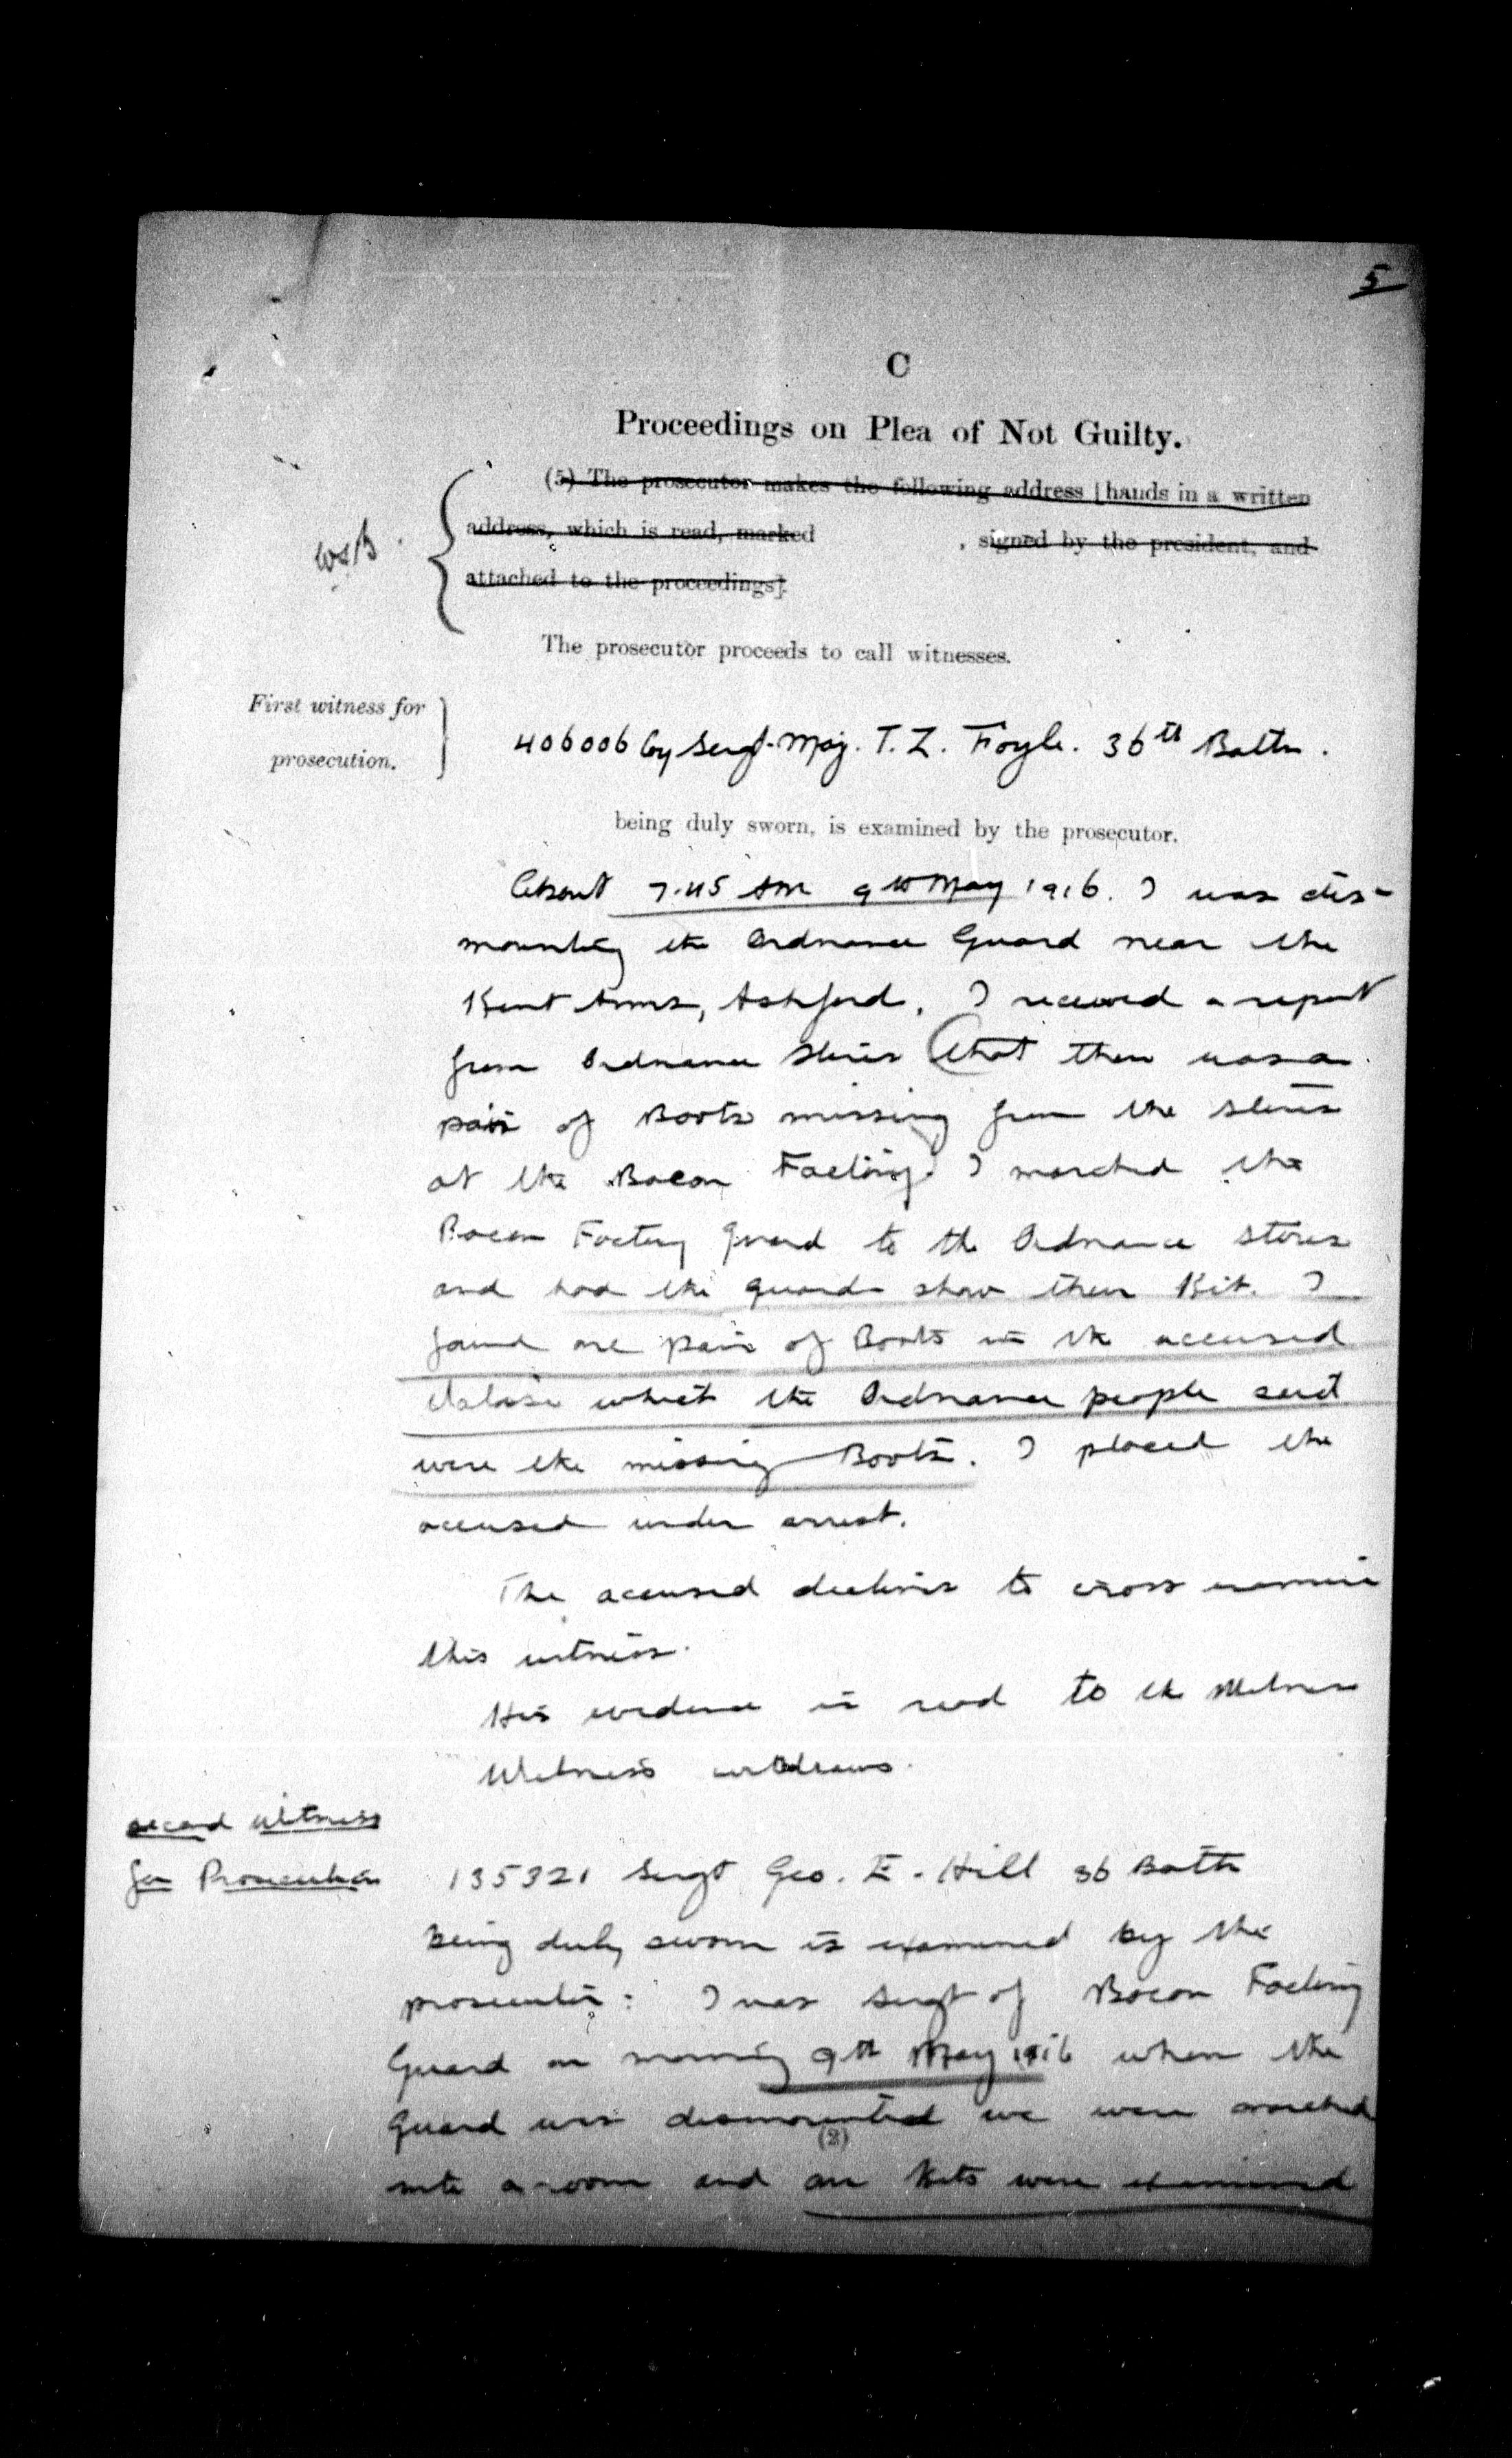 5
C
Proceedings on Plea of Not Guilty.
(5) The prosecutor makes the following address [hands in a written
address, which is read, marked , signed by the president, and
attached to the proceedings].
The prosecutor proceeds to call witnesses.
First witness for
prosecution.
406006 Cy Sergt-Maj. T. Z. Foyle. 36th Battn.
being duly sworn, is examined by the prosecutor.
About 7.45 AM 9th May 1916. I was dis-
mounting the Ordnance Guard near the
Kent Arms, Ashford. I received a report
from Ordnance Stores that there was a
pair of Boots missing from the stores
at the Bacon Factory. I marched the
Bacon Factory Guard to the Ordnance stores
and had the guard show their Kit. I
found one pair of Boots in the accused
which the Ordnance people said
were the missing Boots. I placed the
accused under arrest.
The accused declines to cross examine
this witness.
His evidence is read to the Witness
Witness withdraws.
second witness
for Prosecution
135321 Sergt Geo. E. Hill 36 Battn
being duly sworn is examined by the
prosecutor: I was Sergt of Bacon Factory
Guard on morning 9th May 1916 when the
Guard was dismounted we were marched
(2)
into a room and our Kits were examined